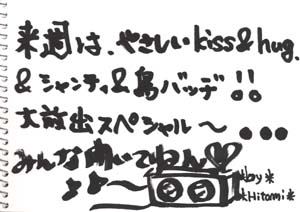 来週は、やさしいkiss&hug.
&シャンティ&島バッヂ!!
大放出スペシャル〜...
みんな聞いてねん♡
*by*
*Hitomi*